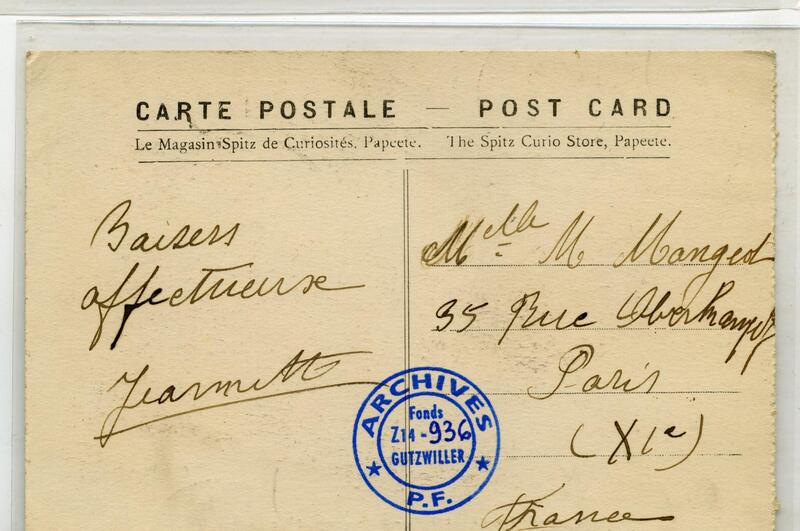 CARTE POSTALE — POST CARD
Le Magasin Spitz de Curiosités, Papeete. The Spitz Curio Store, Papeete.
Baisers
affectueux
Jeannette
Melle M Mangeot
35 Rue Oberkampf
Paris
(XIe)
France
ARCHIVES
Fonds
Z14-936
GUTZWILLER
P.F.